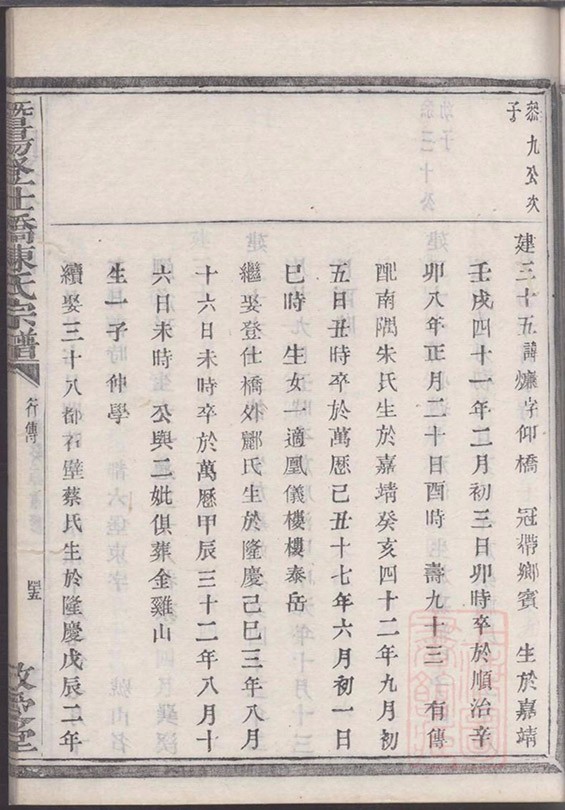 恭九公次
子
建三十五諱爌字仰橋 冠帶鄉賓 生於嘉靖
壬戌四十一年二月初三日卯時卒於順治辛
卯八年正月二十日酉時 壽九十三 有傳
配南隅朱氏生於嘉靖癸亥四十二年九月初
五日丑時卒於萬厯己丑十七年六月初一日
巳時 生女一適凰儀樓樓泰岳
繼娶登仕橋外酈氏生於隆慶己巳三年八月
十六日未時卒於萬厯甲辰三十二年八月十
六日未時 公與二妣俱葬金雞山
生一子仲學
續娶三十八都石壁蔡氏生於隆慶戊辰二年
暨陽登仕橋陳氏宗譜
行傳